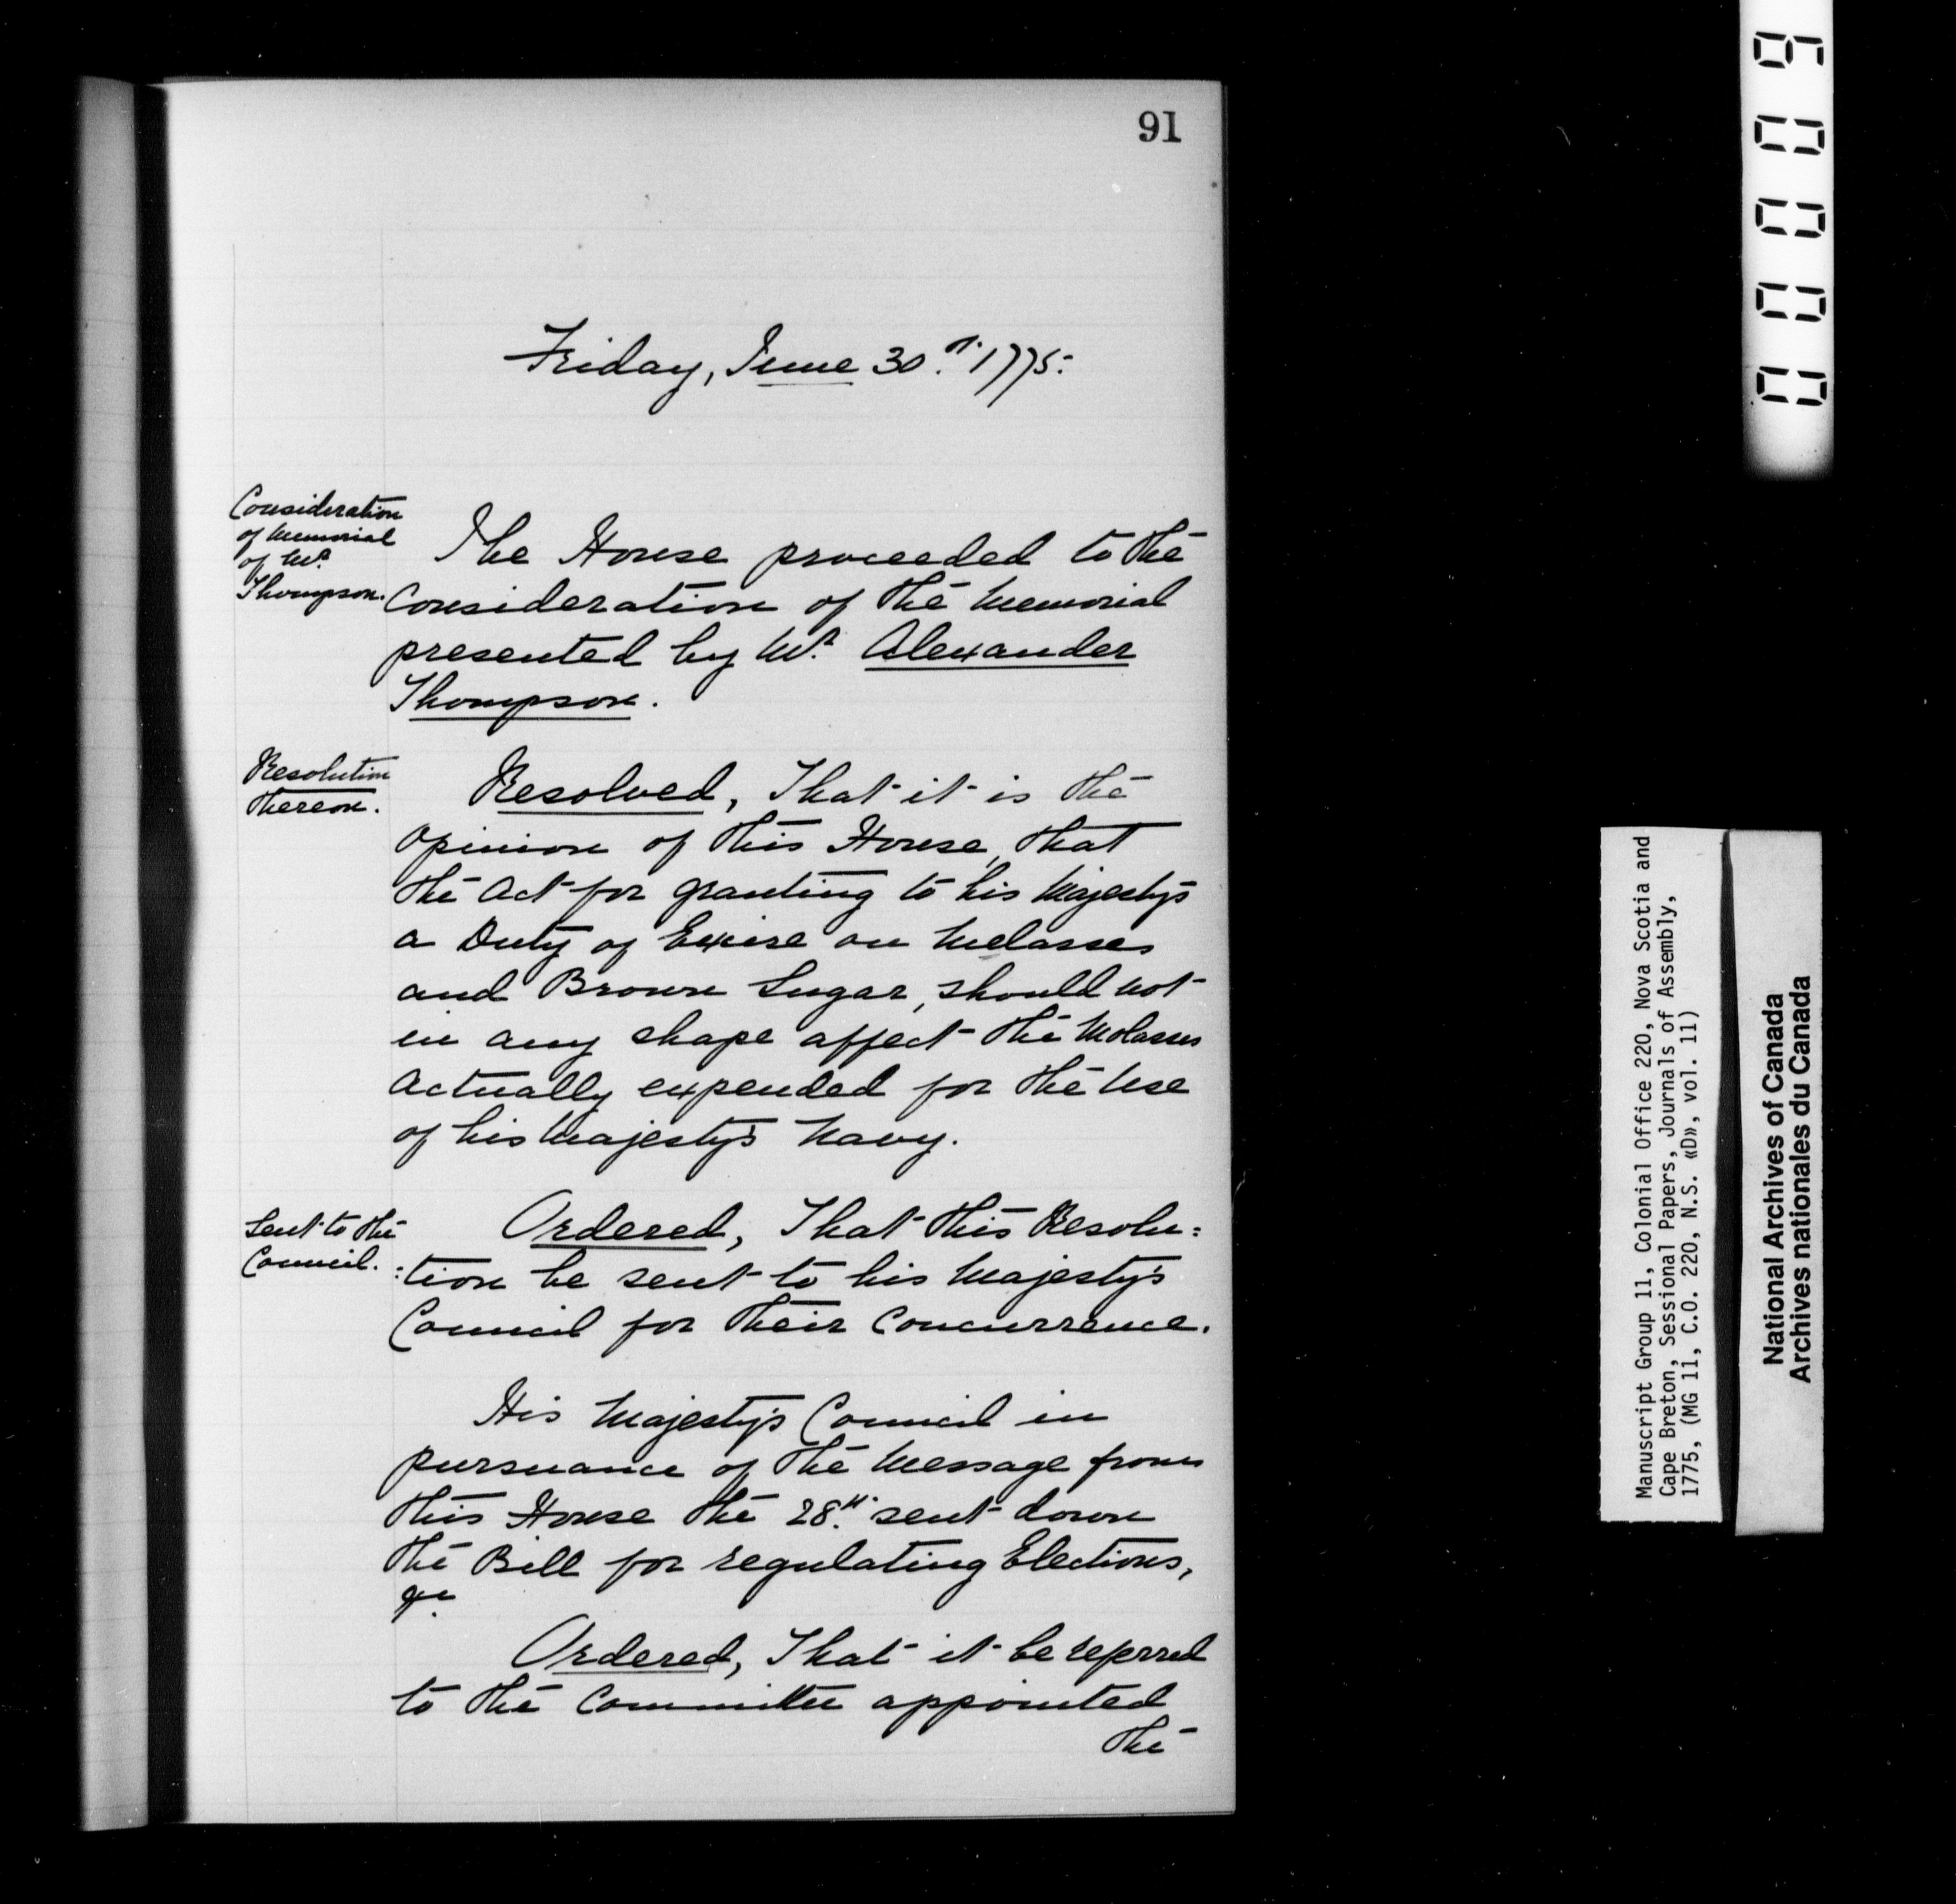 91
Friday, June 30.th 1775.
Consideration
of Memorial
of Mr.
Thompson.
The House proceeded to the
Consideration of the Memorial
presented by Mr. Alexander
Thompson.
Resolution
thereon.
Resolved, That it is the
Opinion of this House, that
the Act for granting to his Majesty's
a Duty of Excise on Melasses
and Brown Sugar, should not
in any shape affect the Molasses
Actually expended for the Use
of his Majesty's Navy.
Sent to the
Council.
Ordered, That this Resolu=
:tion be sent to his Majesty's
Council for their Concurrence.
His Majesty's Council in
pursuance of the Message from
this House the 28.th sent down
the Bill for regulating Elections,
&c.
Ordered, That it be referred
to the Committee appointed
the
Manuscript Group 11, Colonial Office 220, Nova Scotia and
Cape Breton, Sessional Papers, Journals of Assembly,
1775, (MG 11, C.O. 220, N.S. «D», vol. 11)
National Archives of Canada
Archives nationales du Canada